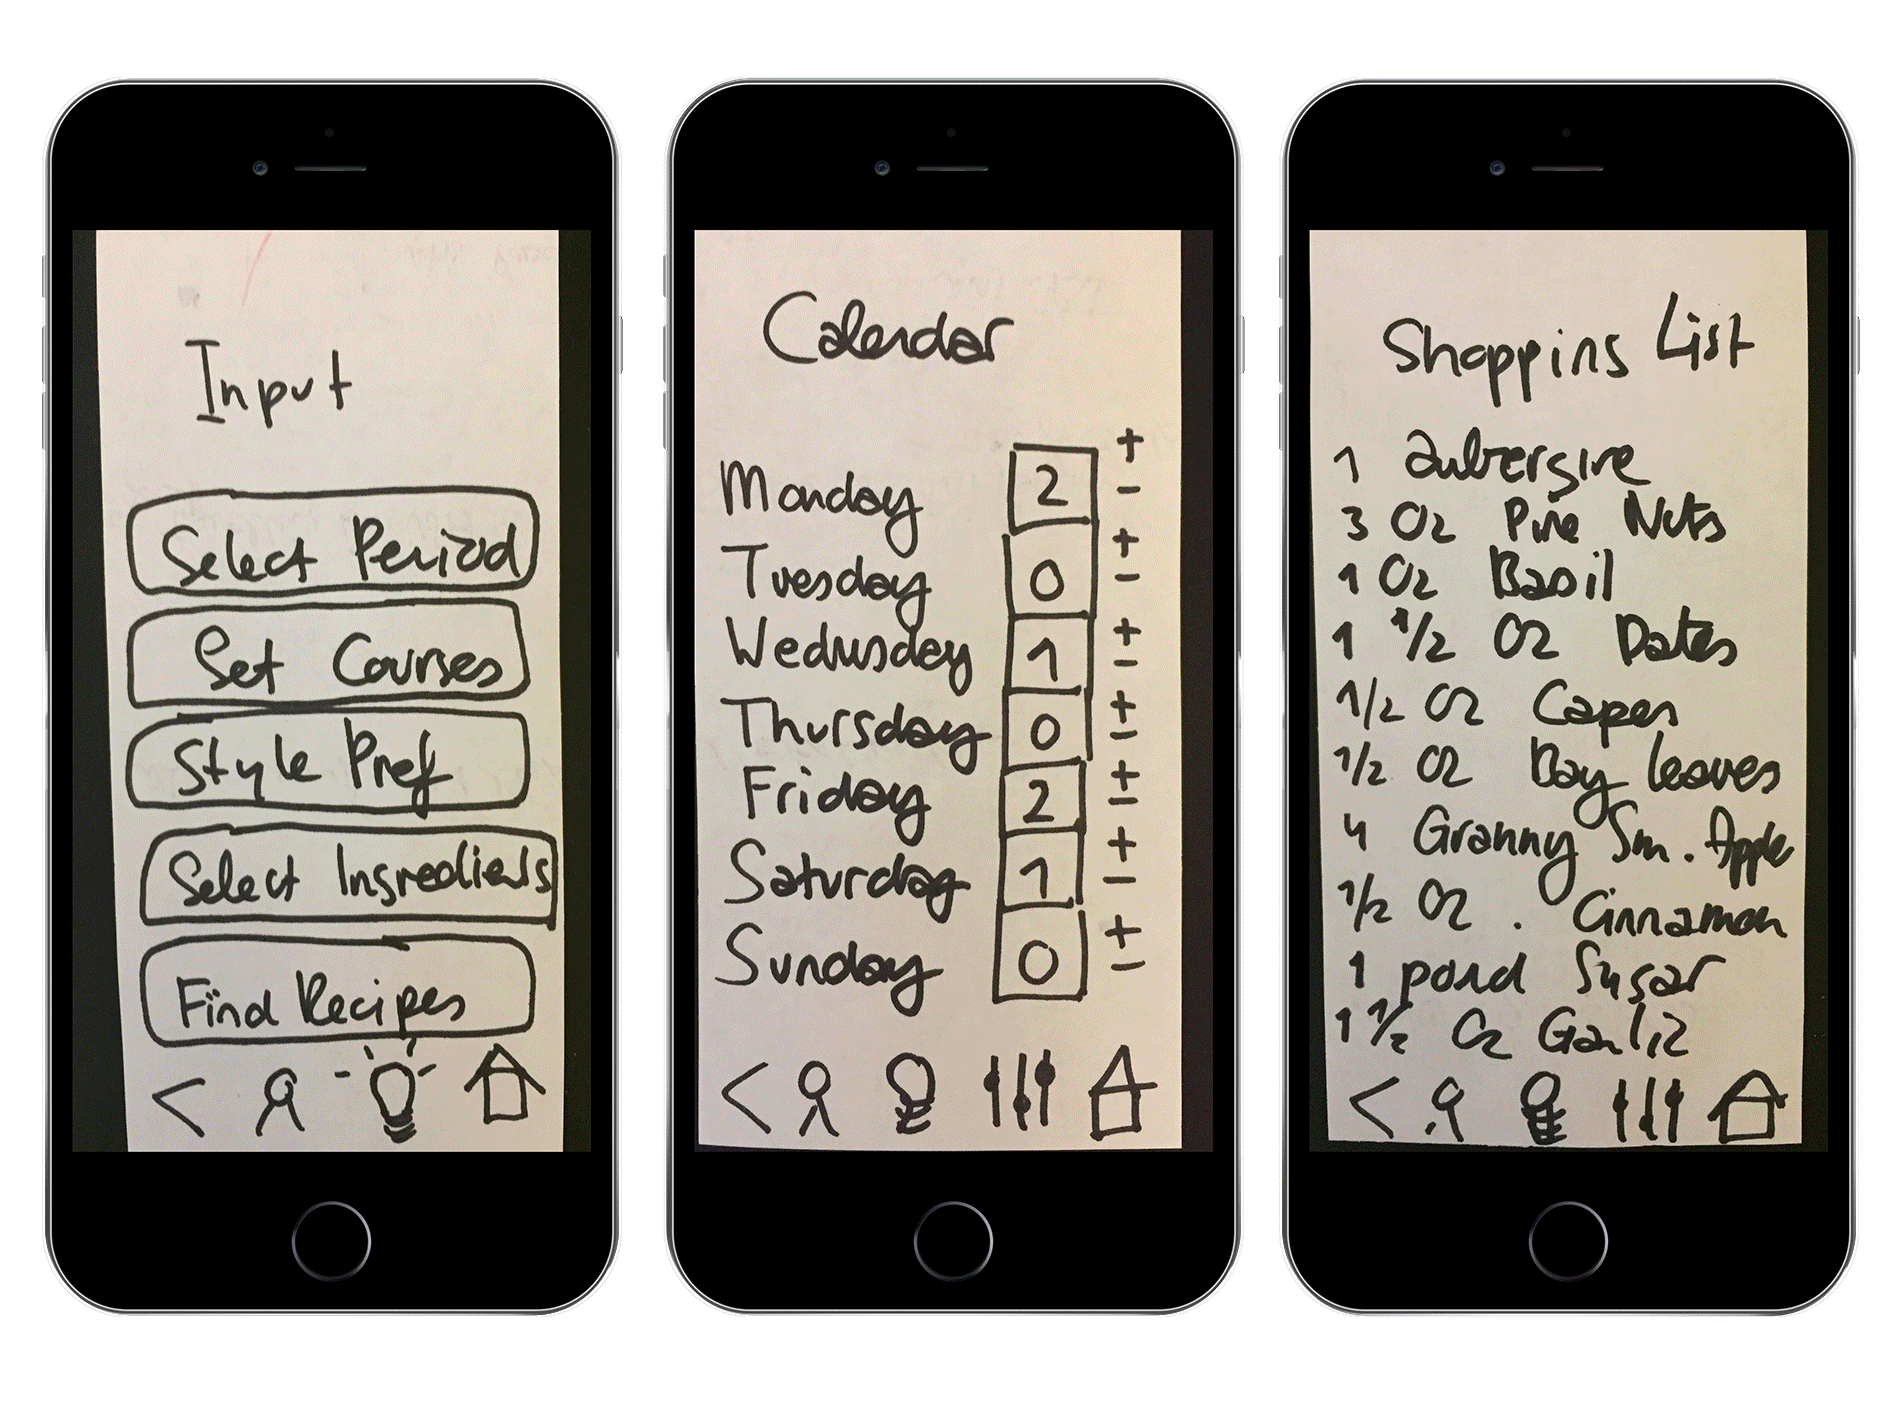 Input
Select Period
Set Courses
Style Pref
Select Ingredients
Find Recipes
<
Calendar
+
Monday 2 -
+
Tuesday 0 -
+
Wednesday 1 -
+
Thursday 0 -
+
Friday 2 -
+
Saturday 1 -
+
Sunday 0 -
<
Shopping List
1 aubergine
3 Oz Pine Nuts
1 Oz Basil
1 1/2 Oz Dates
1/2 Oz Caper
1/2 Oz Bay leaves
4 Granny Sm. Apple
1/2 Oz. Cinnamon
1 pound Sugar
1 1/2 Oz Garlic
<